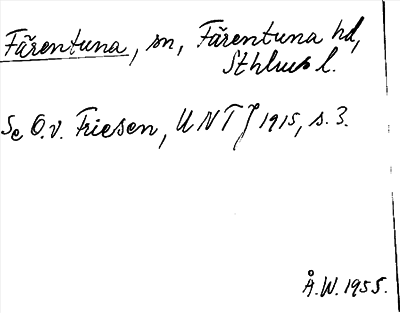 Färentuna, sn, Färentuna hd,
Sthlms l.
Se O.v. Friesen, UNT J 1915, s. 3.
Å.W. 1955.